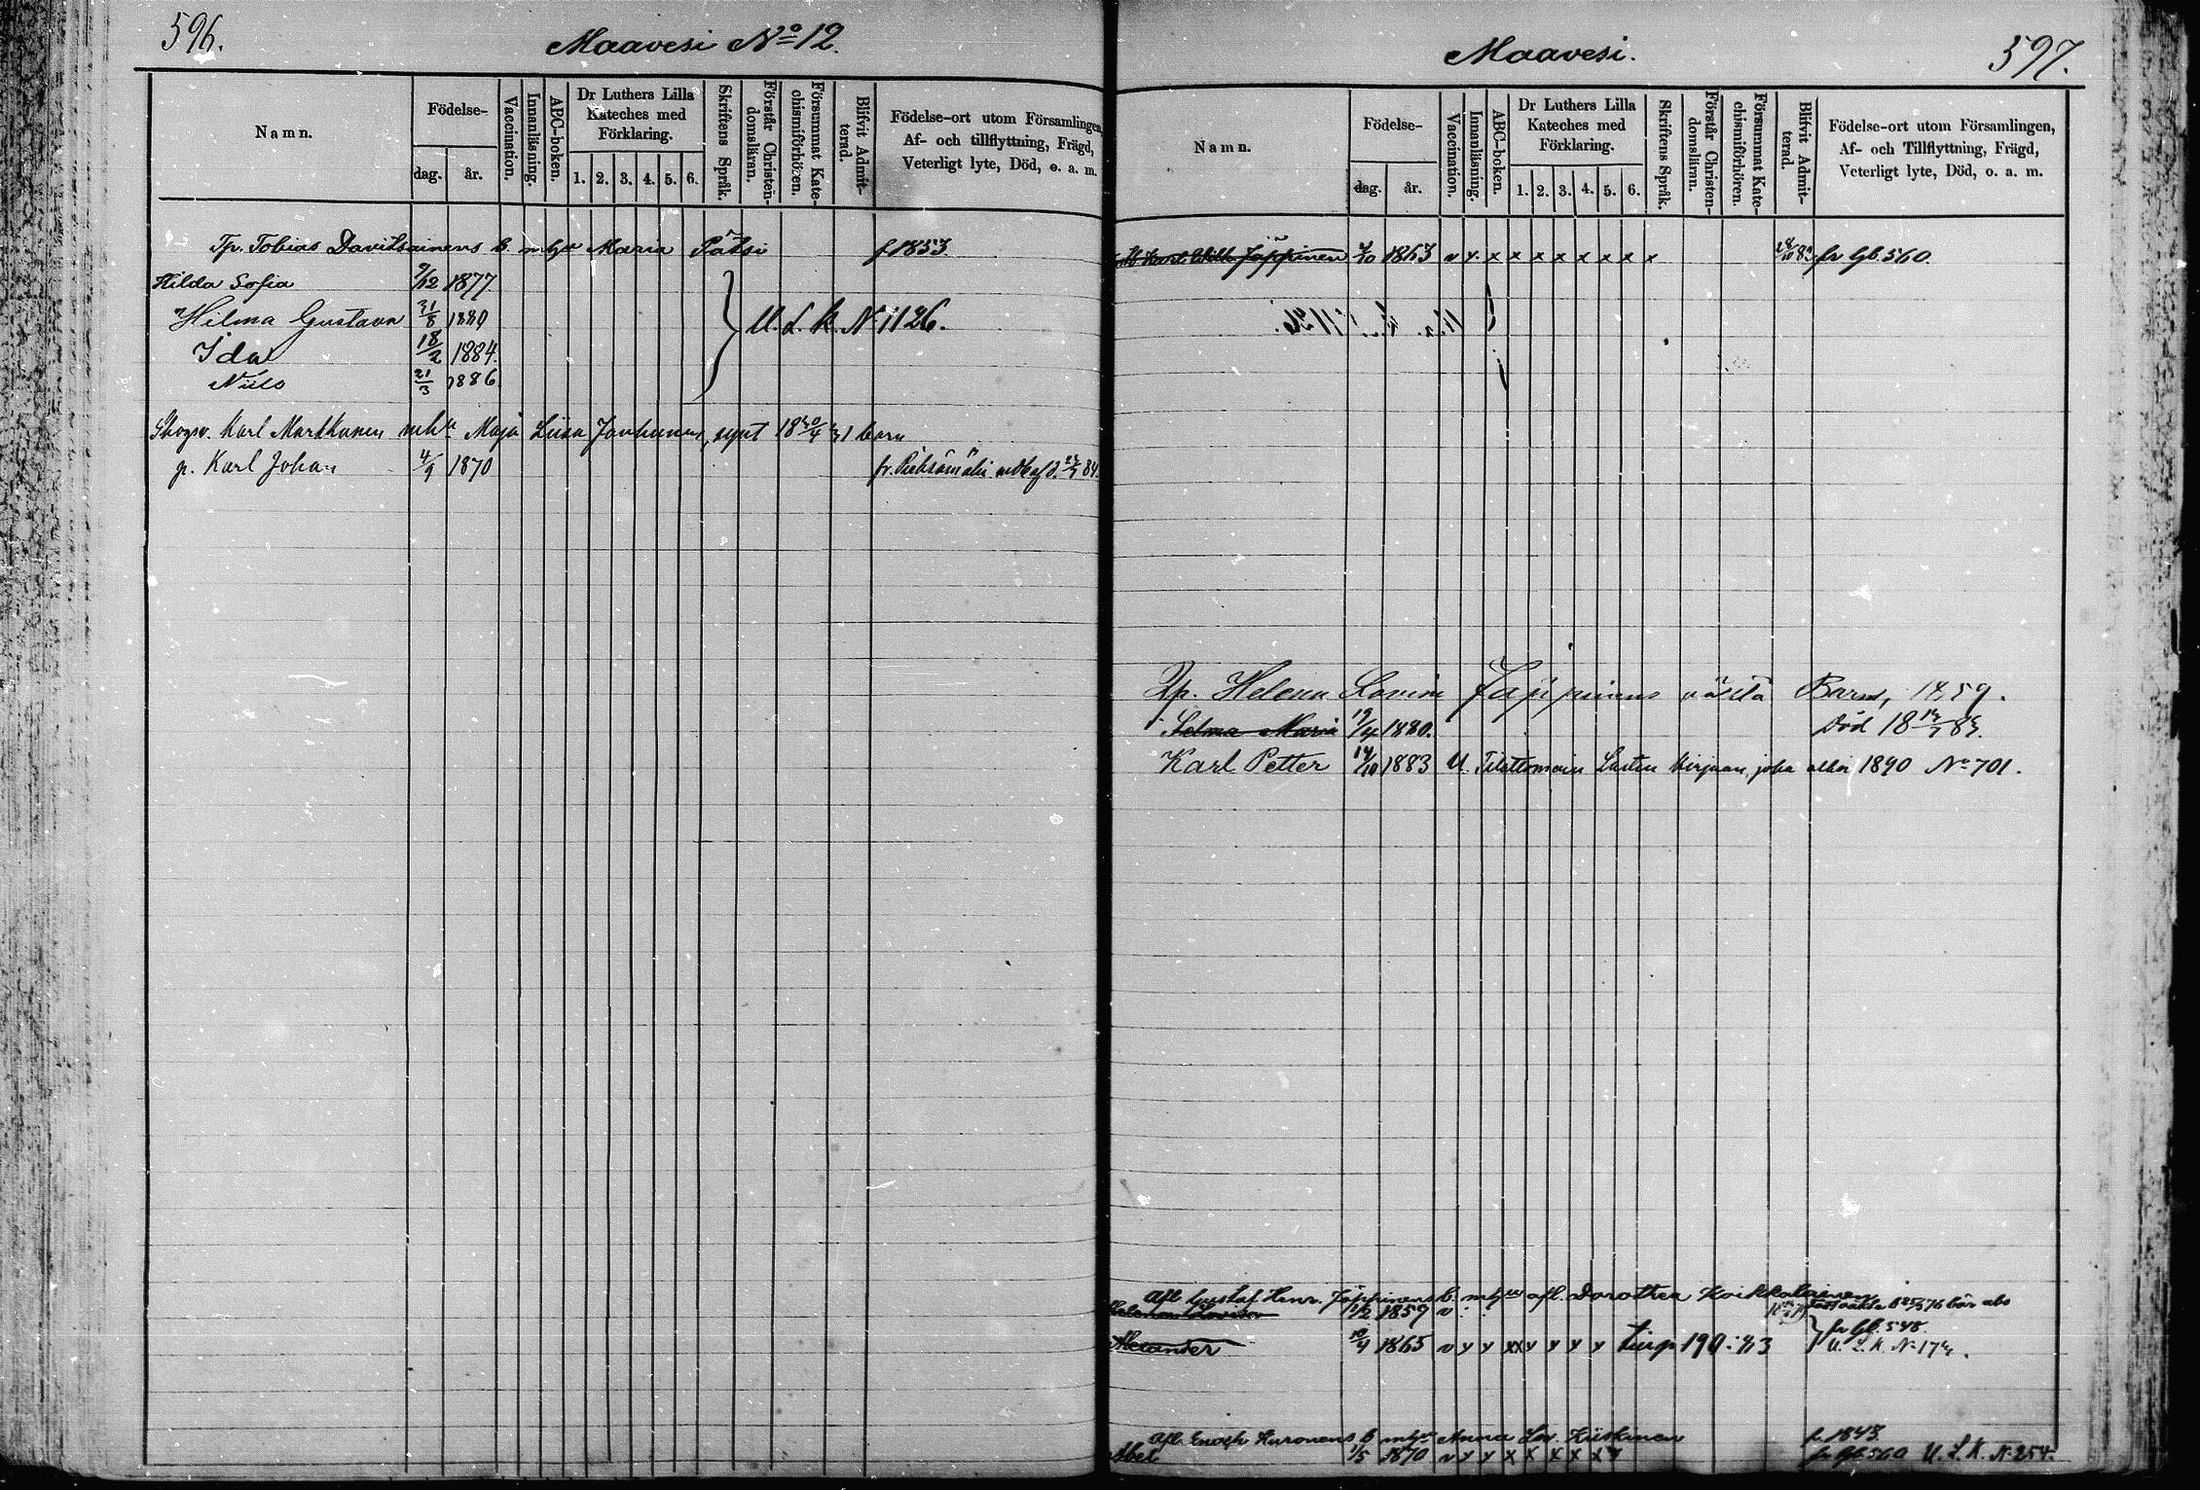 596.
Maavesi No 12.
Namn.
Födelse-
dag.
år.
Vaccination.
Innanläsning.
ABC-boken.
Dr Luthers Lilla
Kateches med
Förklaring.
1. 2. 3. 4. 5. 6.
Skriftens Språk.
Förstår Christen-
domsläran.
Försummat Kate-
chismiförhören.
Blifvit Admit-
terad.
Födelse-ort utom Församlingen,
Af- och tillflyttning, Frägd,
Veterligt lyte, Död, o. a. m.
Tp. Tobias Davitsainens b. mhu Maria Pätsi f 1853
Hilda Sofia 9/12 1877.
Hilma Gustava 31/8 1880
U. L. K. No 1126.
Ida 18/2 1884.
Niilo 21/3 1886
Skogsv. Karl Markkanen mhu Maja Liisa synt 18 barn
p. Karl Johan 4/9 1870 fr. Pieksämäki 84.
Maavesi.
597.
Namn.
Födelse-
dag.
år.
Vaccination.
Innanläsning.
ABC-boken.
Dr Luthers Lilla
Kateches med
Förklaring.
1. 2. 3. 4. 5. 6.
Skriftens Språk.
Förstår Christen-
domsläran.
Försummat Kate-
chismiförhören.
Blifvit Admit-
terad.
Födelse-ort utom Församlingen,
Af- och Tillflyttning, Frägd,
Veterligt lyte, Död, o. a. m.
Karl Wilh Jäppinen 1863 v y. x x x x x x x x fr Gb. 560.
Helena Lovisa Jäppinens oäkta Barn, 1859.
Selma Maria 19/4 1880. Död
Karl Petter 14/10 1883 U. Tilattomain Lasten kirjaan, joka alkoi 1890 No 701.
Afl. Gustaf Henr. Jäppinens b. mhu afl. Dorothea Koikkalainen
Helena Lovisa 1/2 1859 v
fr Gb. 548.
Alexander 10/4 1865 v y y xx y y y y
U. L. K. No
Afl. Enogh Kuronens b mhu Anna Lov. Kiiskinen f. 1843
Abel 1/5 1870 v y y x x x x x y fr Gb 560 U. L. K. No 254.